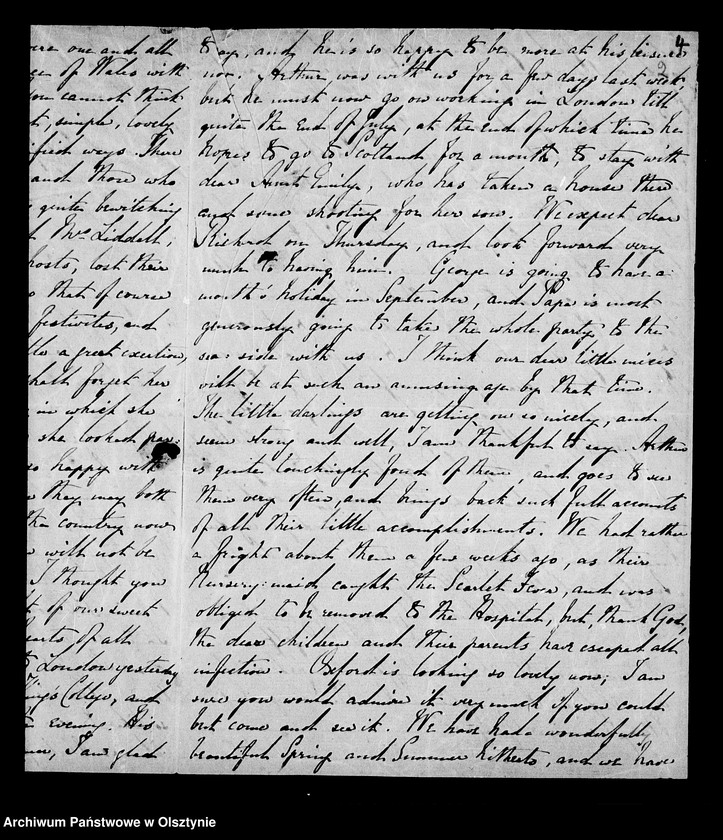 4
were one and all
of Wales with
you cannot think
simple, lovely
ways. There
and those who
quite bewitching
Mrs. Liddell,
hosts, lost their
that of course
festivites, and
a great exertion,
shall forget her
in which she
she looked
so happy with
they may both
the country now
will not be
I thought you
of our sweet
hearts of all
to London yesterday
Kings College, and
evening. His
I am glad
to say, and he is so happy to be more at his leisure
now. Arthur was with us for a few days last week,
but he must now go on working in London till
quite the End of July, at the end of which time he
hopes to go to Scotland for a month, to stay with
dear Aunt Emily, who has taken a house there
and some shooting for her son. We expect dear
Richard on Thursday, and look forward very
much to having him. George is going to have a
month's holiday in September, and Papa is most
generously going to take the whole party to the
sea-side with us. I think our dear little nieces
will be at such an amusing age by that time.
The little darlings are getting on so nicely, and
seem strong and well, I am thankful to say. Arthur
is quite touchingly fond of them, and goes to see
them very often, and brings back such full accounts
of all their little accomplishments. We had rather
a fright about them a few weeks ago, as their
Nursery-maid caught the Scarlet Fever, and was
obliged to be removed to the Hospital, but, thank God,
the dear children and their parents have escaped all
infection. Oxford is looking so lovely now; I am
sure you would admire it very much if you could
but come and see it. We have had a wonderfully
beautiful Spring and Summer hitherto, and we have
Archiwum Państwowe w Olsztynie